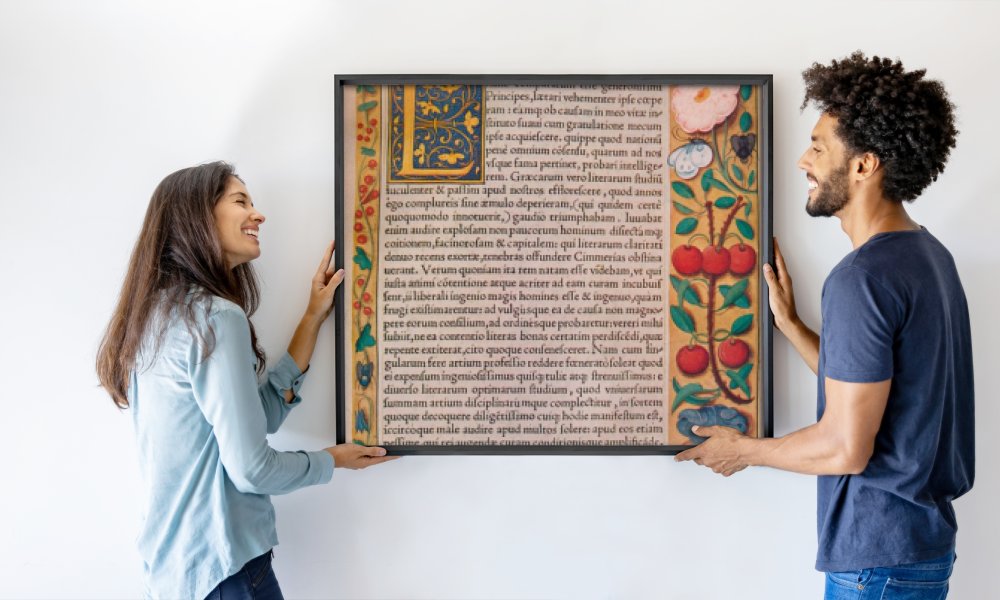 E
Principes, lætari vehementer ipſe cœpe
ram: eamq; ob cauſam in meo vitæ in-
ſtituto ſuaui cum gratulatione mecum
ipſe acquieſcere. quippe quod nationũ
penè omnium cõſenſu, quarum ad nos
vſque fama pertinet, probari intellige-
rem. Græcarum vero literarum ſtudiũ
luculenter & paſſim apud noſtros effloreſcere, quod annos
ego complureis ſine æmulo deperieram, (qui quidem certè
quoquomodo innotuerit,) gaudio triumphabam. Iuuabat
enim audire exploſam non paucorum hominum diſiectãmq;
coitionem, facinoroſam & capitalem: qui literarum claritati
denuo recens exortæ, tenebras offundere Cimmerias obſtina
uerant. Verum quoniam ita rem natam eſſe videbam, vt qui
iuſta animi cõtentione atque acriter ad eam curam incubuiſ
ſent, ii liberali ingenio magis homines eſſe & ingenuo, quàm
frugi exiſtimarentur: ad vulgúſque ea de cauſa non magno-
pere eorum conſilium, ad ordinéſque probaretur: vereri mihi
ſubiit, ne ea contentio literas bonas certatim perdiſcẽdi, quæ
repente extiterat, cito quoque conſeneſceret. Nam cum ſin-
gularum fere artium profeſſio reddere fœnerato ſoleat quod
ei expenſum ingenioſiſſimus quiſq; tulit atq; ſtrenuiſſimus: e
diuerſo literarum optimarum ſtudium, quod vniuerſarum
ſummam artium diſciplinarúmque complectitur, in ſortem
quoque decoquere diligẽtiſſimo cuiq; hodie manifeſtum eſt,
iccircoque male audire apud multos ſolere: apud eos etiam
peſſime, qui rei augendæ curam conditioniſque amplificãdæ,